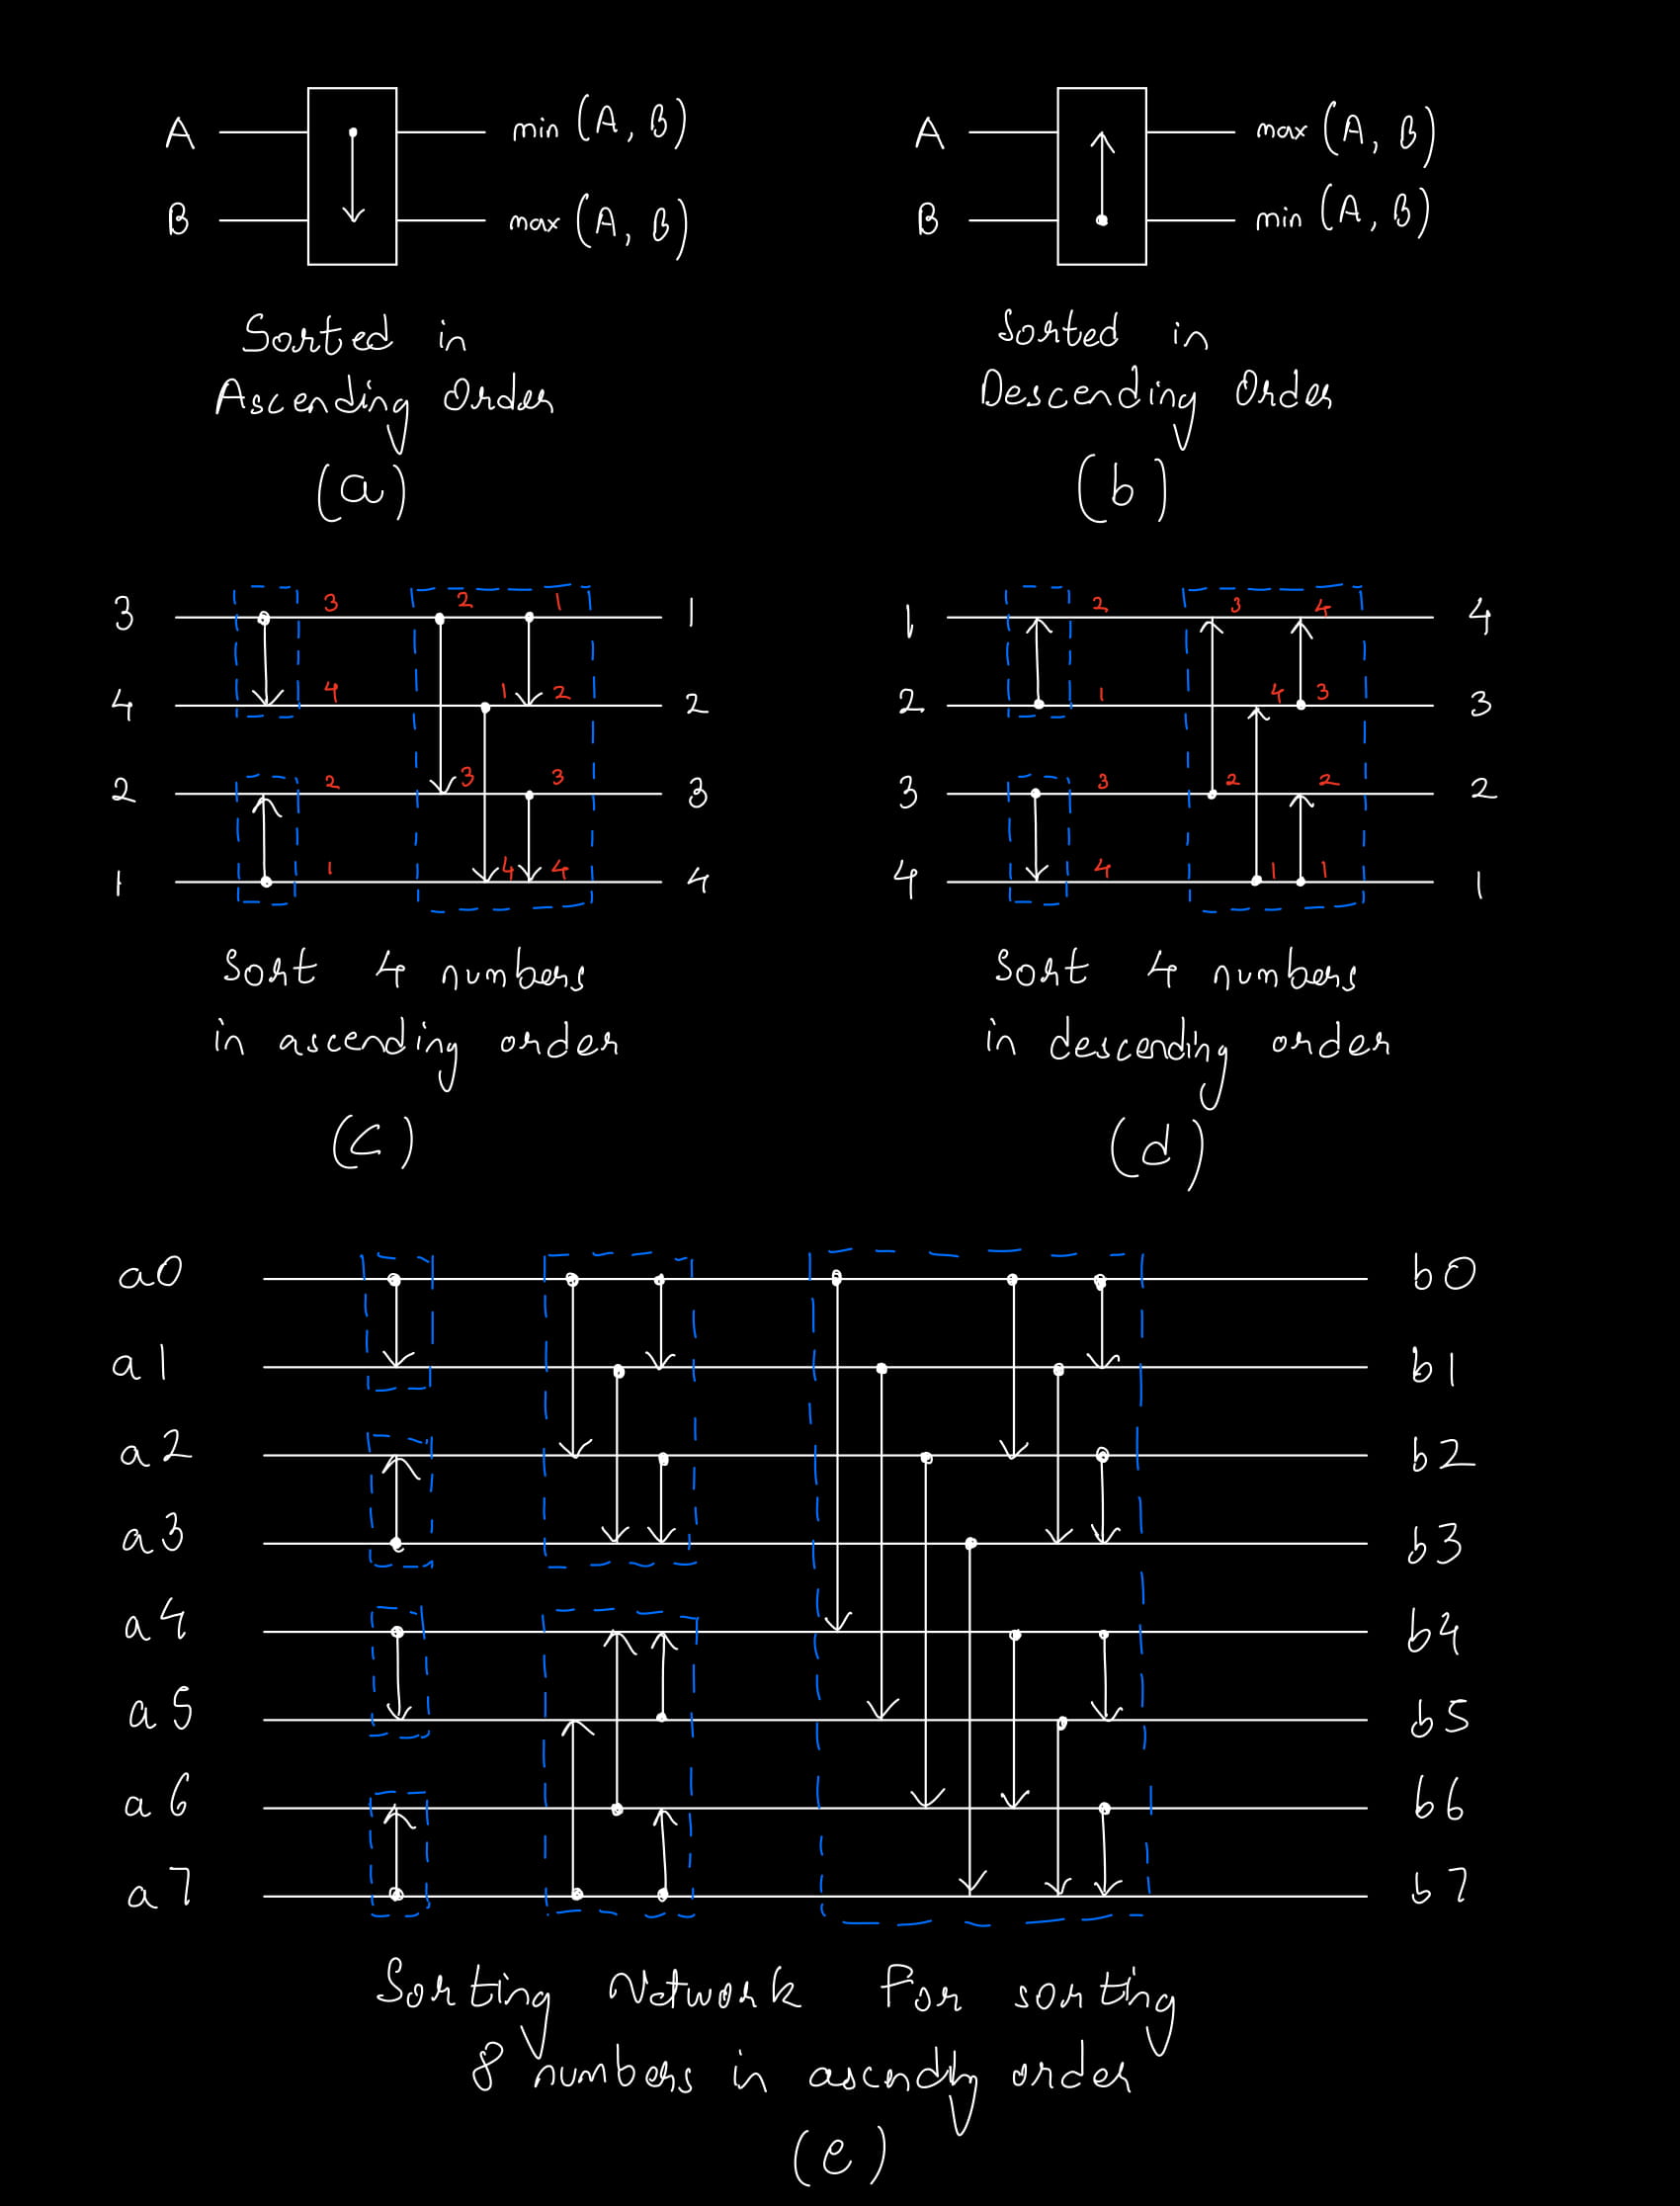 A min (A, B)
B max (A, B)
Sorted in
Ascending Order
(a)
A max (A, B)
B min (A, B)
Sorted in
Descending Order
(b)
3 3 2 1 1
4 4 1 2 2
2 2 3 3 3
1 1 4 4 4
Sort 4 numbers
in ascending order
(c)
1 2 3 4 4
2 1 4 3 3
3 3 2 2 2
4 4 1 1 1
Sort 4 numbers
in descending order
(d)
a0 b0
a1 b1
a2 b2
a3 b3
a4 b4
a5 b5
a6 b6
a7 b7
Sorting Network For sorting
8 numbers in ascendig order
(e)